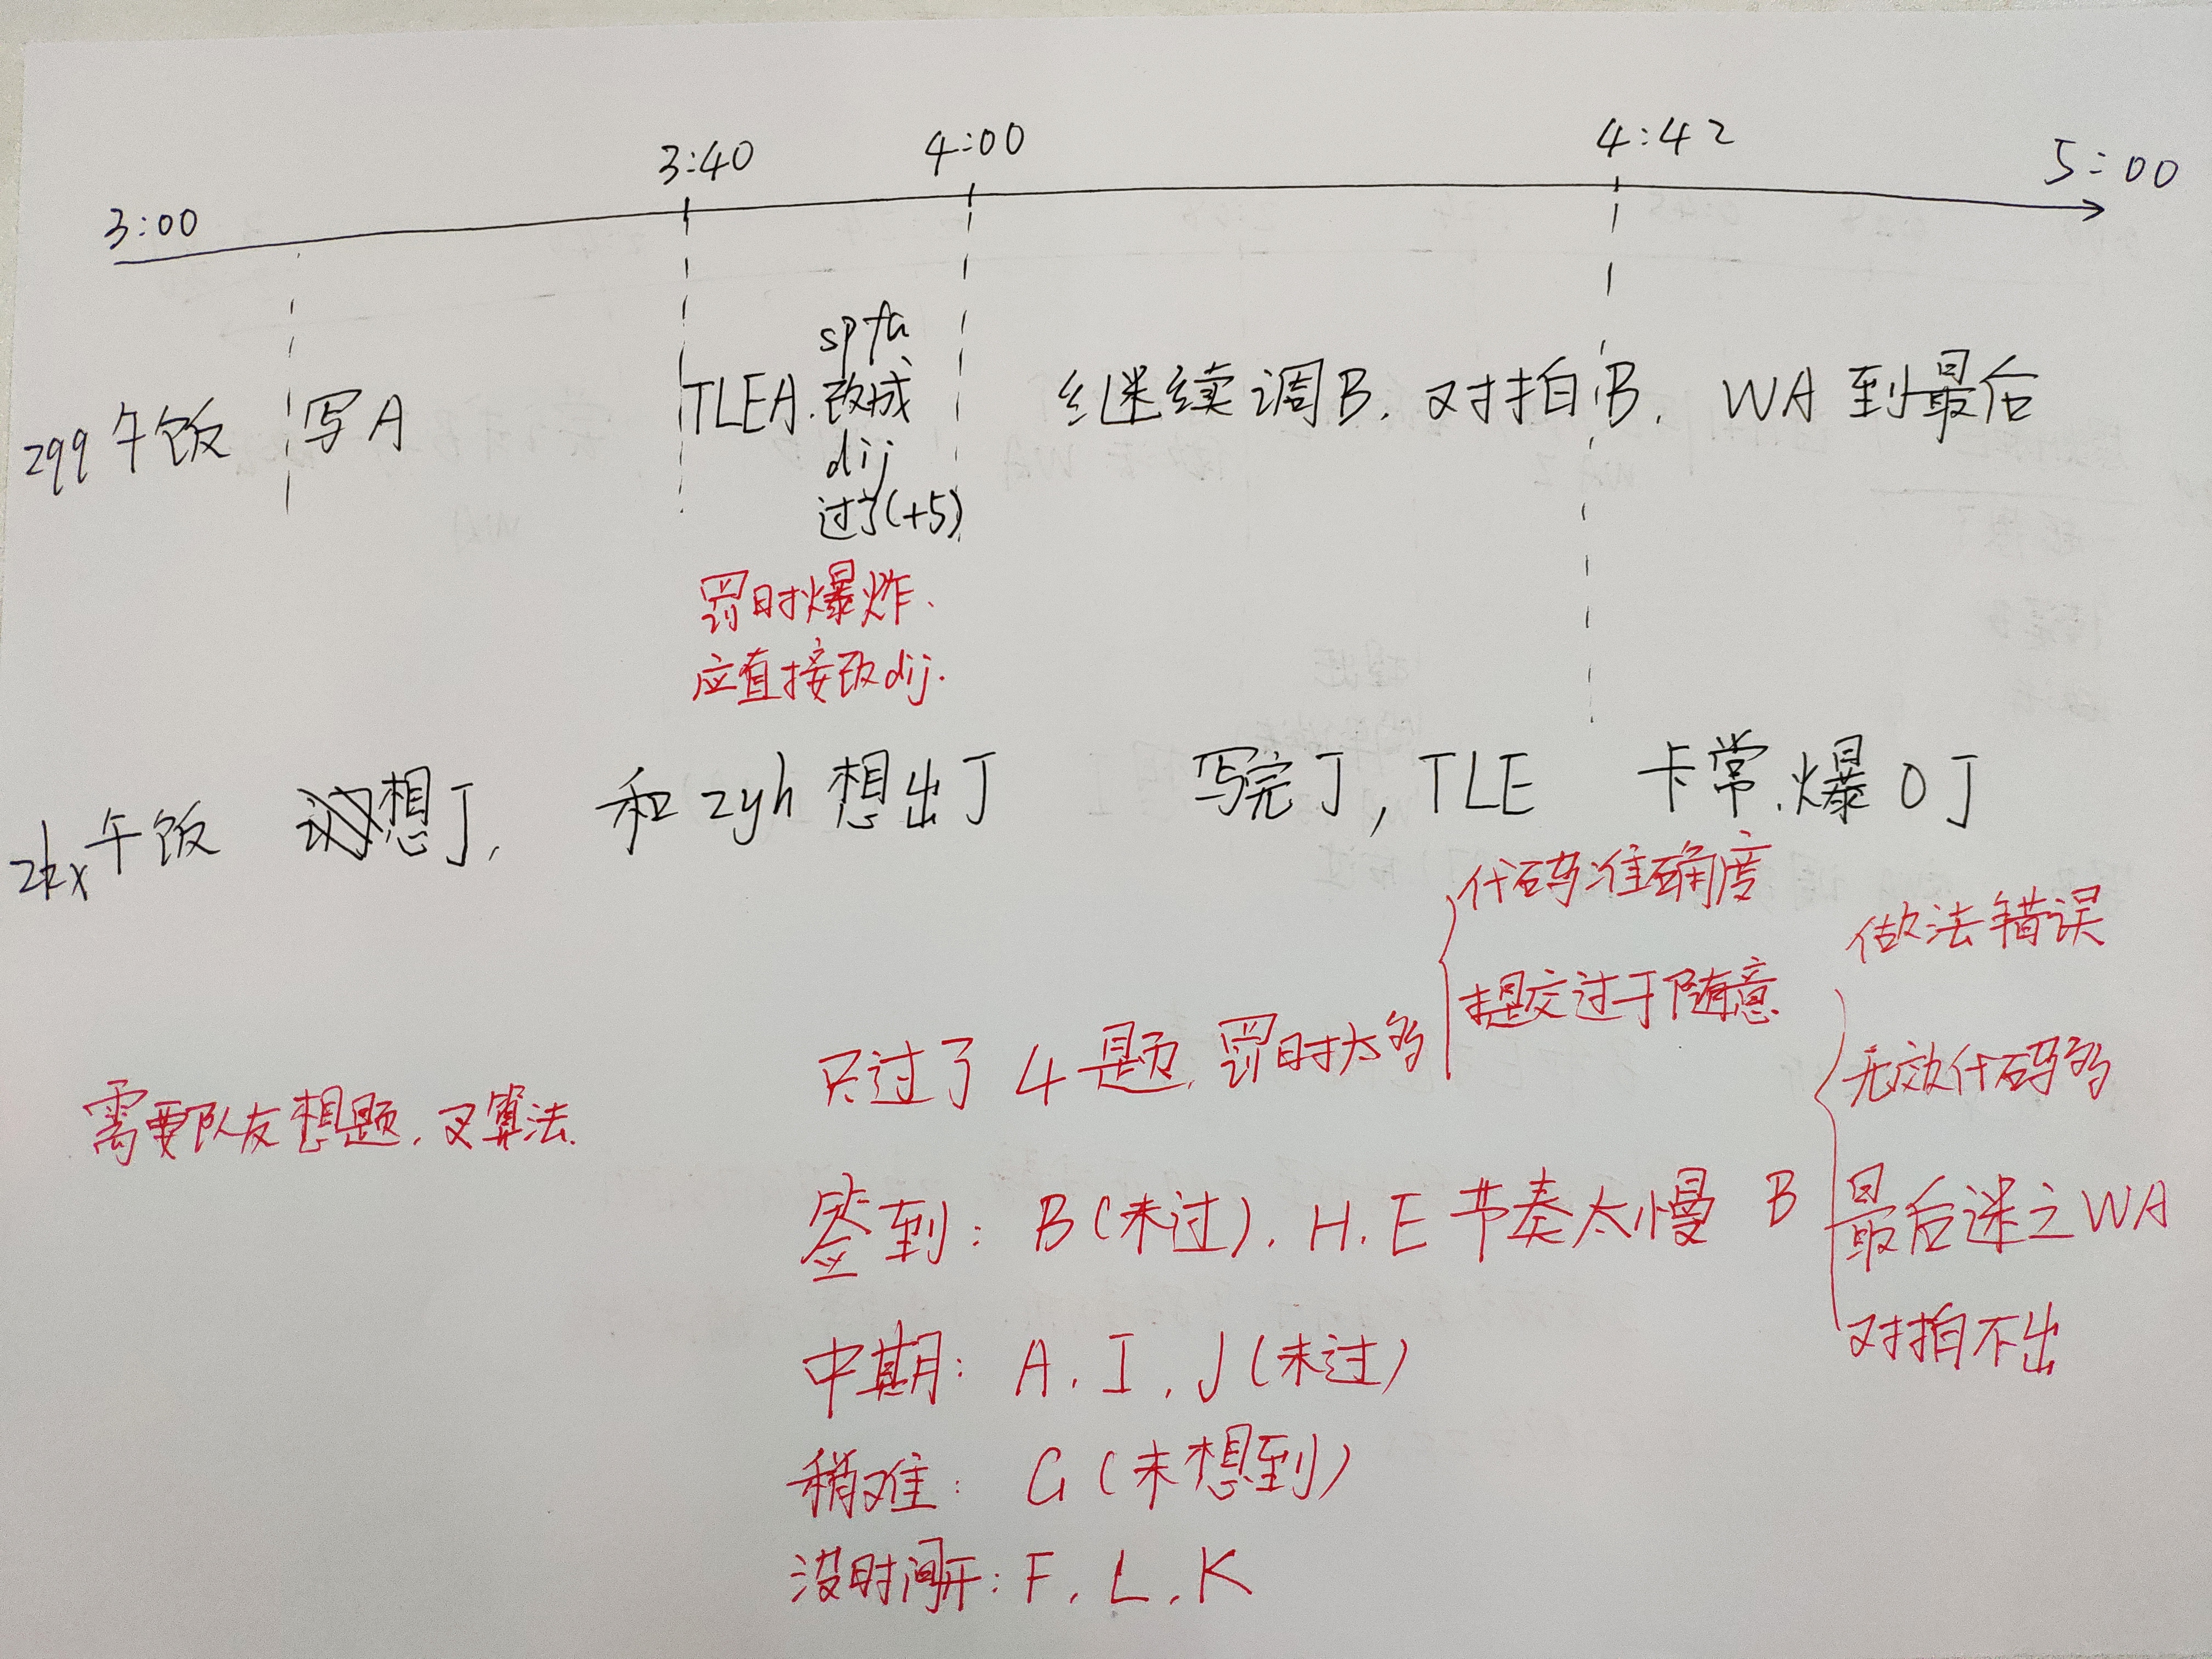 3:00 3:40 4:00 4:42 5:00
zqq 午饭 写A TLEA. spfa 改成 dij 过了(+5) 继续调B. 对拍B. WA到最后
罚时爆炸.
应直接改dij.
zkx 午饭 想J, 和zyh想出J 写完J, TLE 卡常.爆0J
只过了4题. 罚时太多
代码准确度
提交过于随意
需要队友想题. 算法.
签到: B(未过). H. E 节奏太慢
B
做法错误
无效代码多
最后迷之WA
对拍不出
中期: A. I. J(未过)
稍难: G(未想到)
没时间开: F. L. K